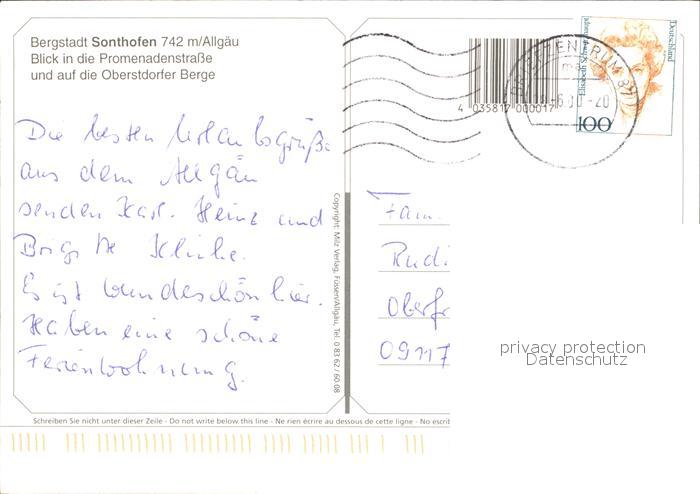 Bergstadt Sonthofen 742 m/Allgäu
Blick in die Promenadenstraße
und auf die Oberstdorfer Berge
Die besten Urlaubsgrüße
aus dem Allgäu
senden Karl. Heinz und
Brigitte
Es ist wundeschön hier.
Haben eine schöne
Ferienwohnung.
Copyright: Milz Verlag, Füssen/Allgäu, Tel. 0 83 62 / 60 08
4 035817 000017
BRIEFZENTRUM 87
-20
Deutschland
100
Fam.
Rudi
Oberfr
09117
privacy protection
Datenschutz
Schreiben Sie nicht unter dieser Zeile - Do not write below this line - Ne rien écrire au dessous de cette ligne - No escrib